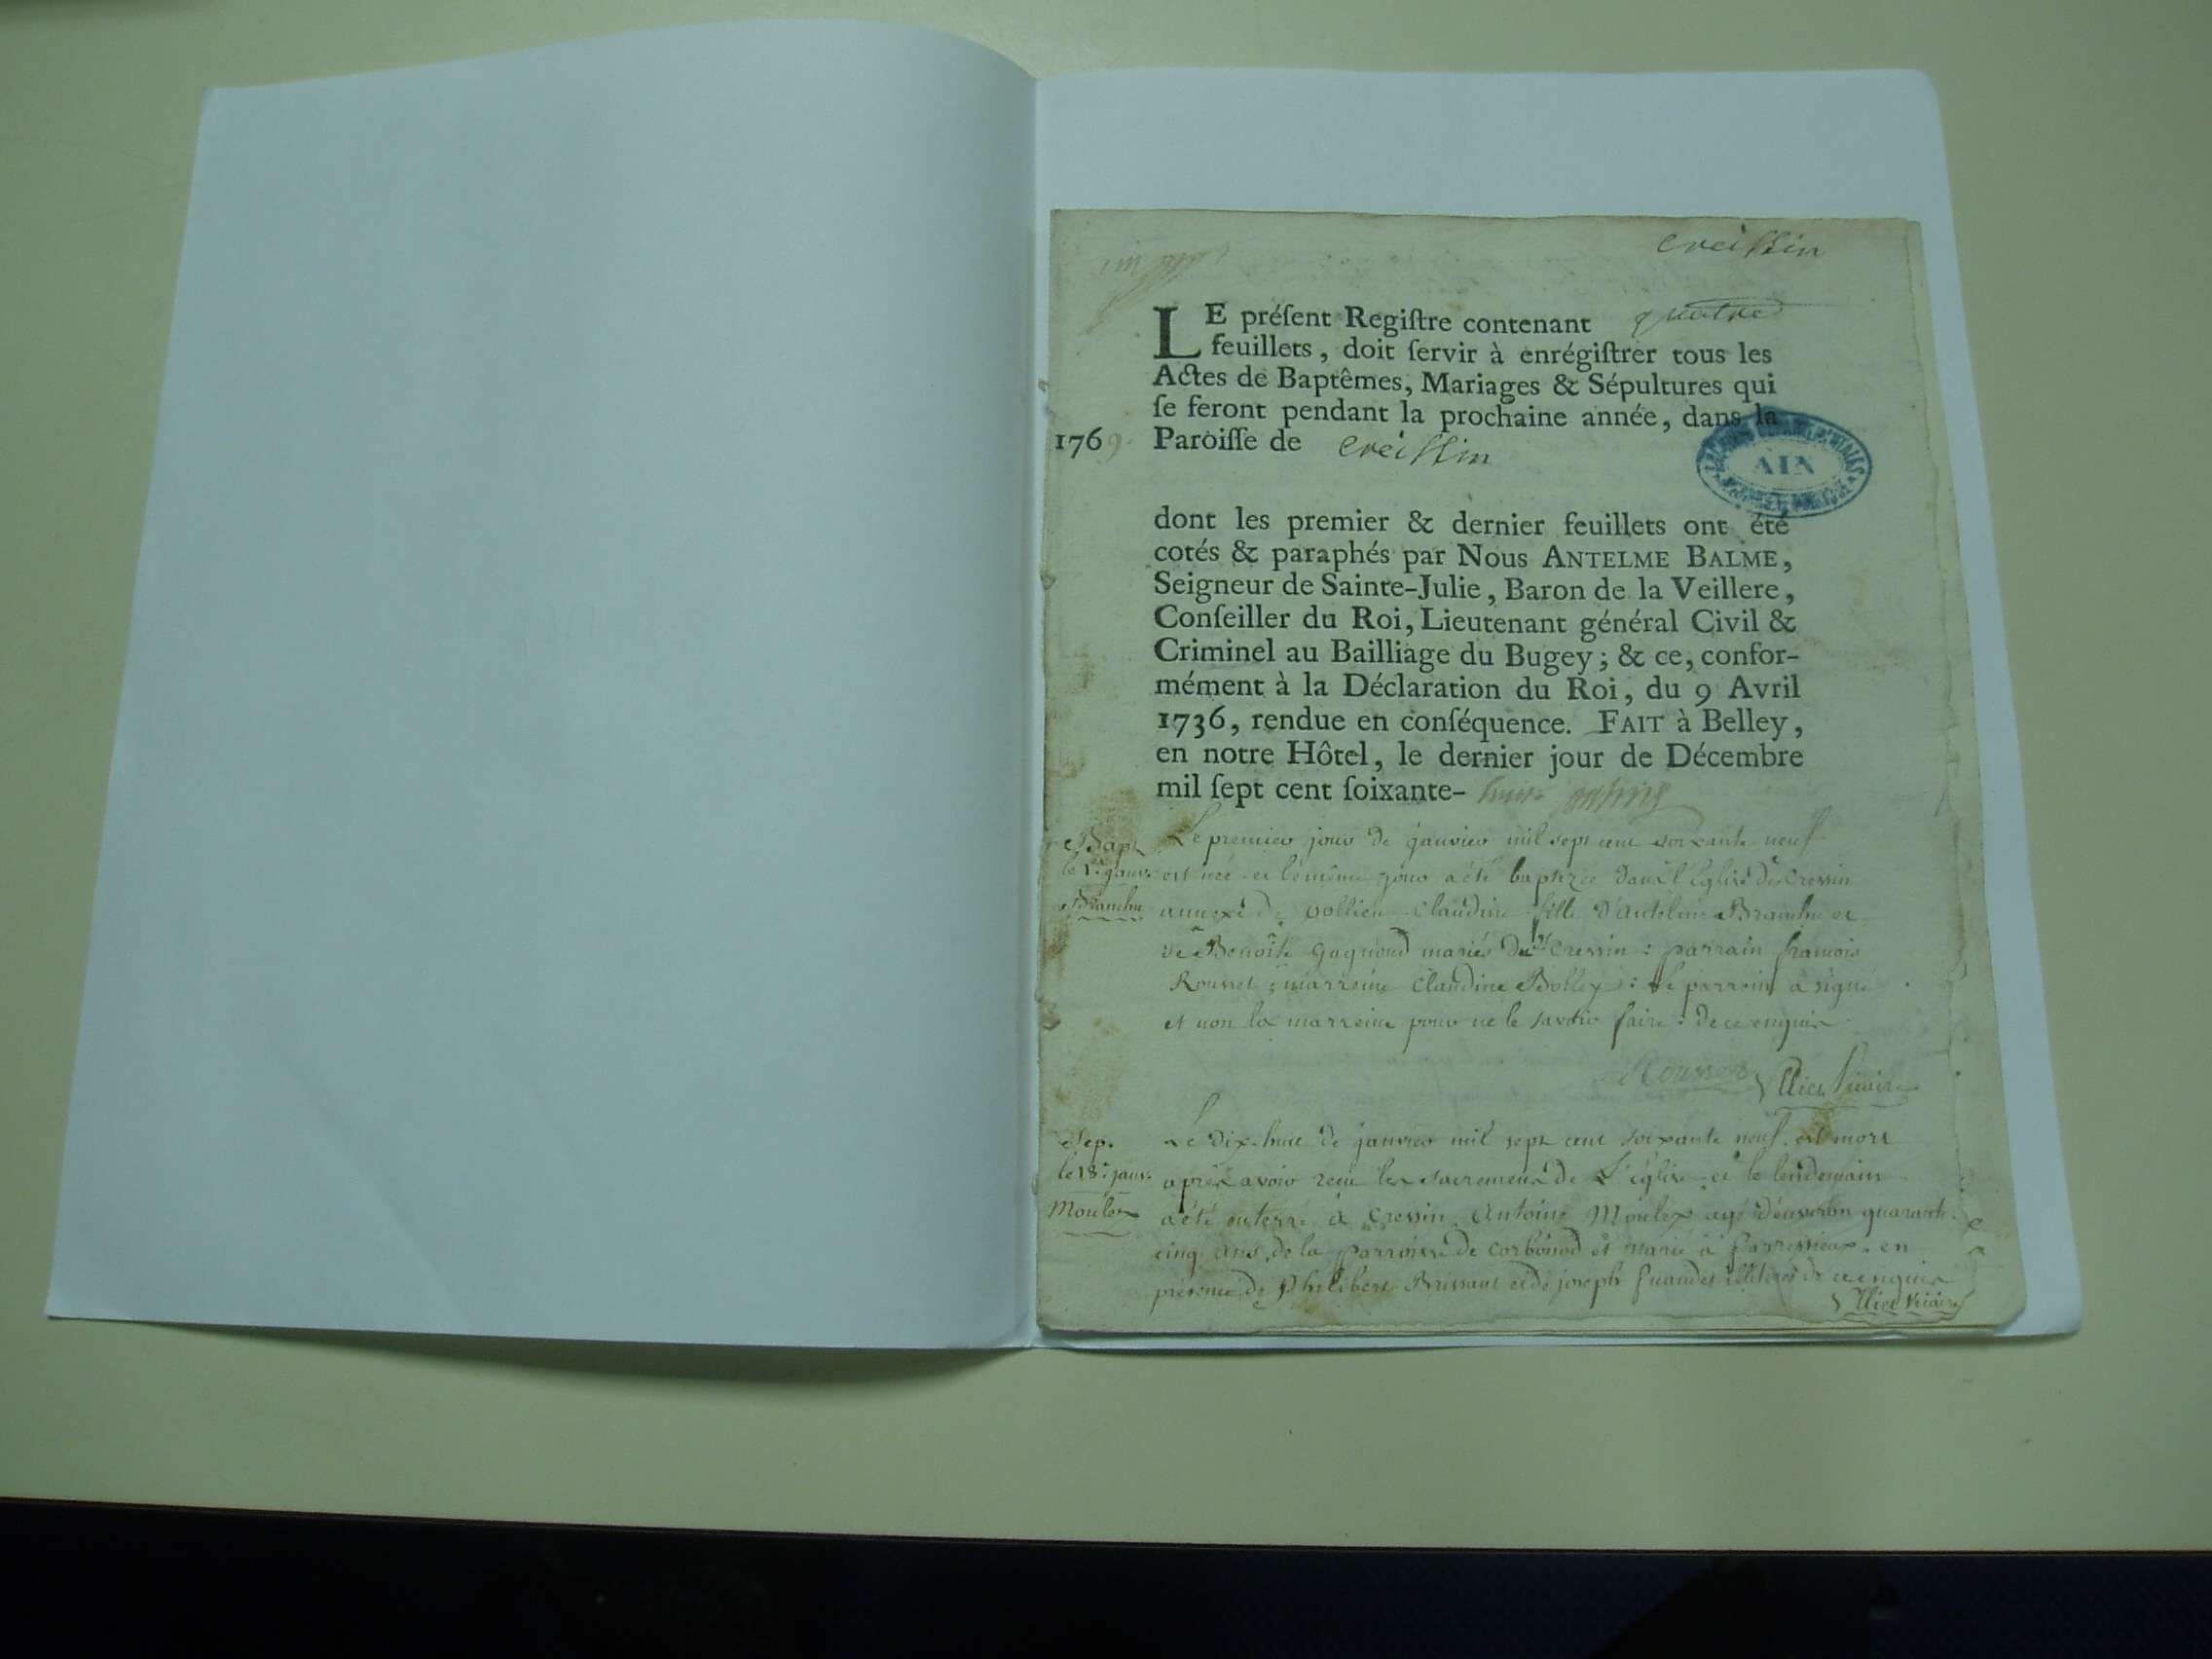 creissin
LE préſent Regiſtre contenant quatre
feuillets, doit ſervir à enrégiſtrer tous les
Actes de Baptêmes, Mariages & Sépultures qui
ſe feront pendant la prochaine année, dans la
1769. Paroiſſe de creissin
AIN
dont les premier & dernier feuillets ont été
cotés & paraphés par Nous ANTELME BALME,
Seigneur de Sainte-Julie, Baron de la Veillere,
Conſeiller du Roi, Lieutenant général Civil &
Criminel au Bailliage du Bugey; & ce, confor-
mément à la Déclaration du Roi, du 9 Avril
1736, rendue en conſéquence. FAIT à Belley,
en notre Hôtel, le dernier jour de Décembre
mil ſept cent ſoixante- huit
Bapt. Le premier jour de janvier mil sept cent soixante neuf
le 1er janv. est née et le même jour a été baptizée dans l'Eglise de Cressin
Branche annexe de pollieu Claudine fille d'Antelme Branche et
de Benoite Gagnoud mariés dud. Cressin : parrain francois
Rousset ; marreine Claudine Bolley : le parrein a signé
et non la marreine pour ne le savoir faire : de ce enquise
Rousset Vicaire
Sep. Le dix-huit de janvier mil sept cent soixante neuf est mort
le 18e janv. après avoir reçu les sacremens de L'église et le lendemain
Moulex a été enterré à Cressin Antoine Moulex agé d'environ quarante
cinq ans de la parroisse de Corbonod et marié à parressieux en
présence de Philibert Brissaut et de joseph illiterés de ce enquis
Vicaire